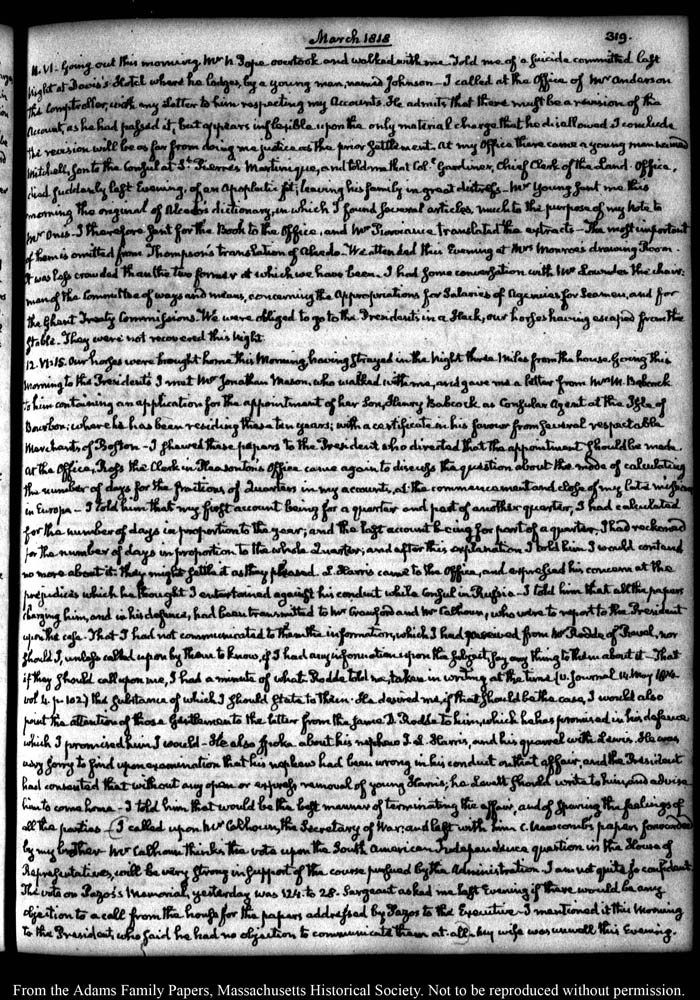 March 1818
319.
11. VI. Going out this morning, Mr N. Pope overtook and walked with me. Told me of a suicide committed last
Night at Davis's Hotel where he lodges, by a young man, named Johnson — I called at the Office of Mr Anderson
the Comptroller, with my Letter to him respecting my Accounts. He admits that there must be a revision of the
Account, as he had passed it, but appears inflexible upon the only material charge that he disallowed. I conclude
the revision will be as far from doing me justice as the prior settlement. At my Office there came a young man named
Mitchell, son to the Consul at St. Pierre's Martinique, and told me that Col. Gardiner, Chief Clerk of the Land-Office,
died suddenly last Evening, of an Apoplectic fit; leaving his family in great distress — Mr Young sent me this
morning the original of Alcedo's dictionary, in which I found several articles, much to the purpose of my Note to
Mr Onis — I therefore sent for the Book to the Office, and Mr translated the extracts — The most important
of them is omitted from Thompson's translation of Alcedo. We attended this Evening at Mrs Monroe's drawing Room.
It was less crowded than the two former at which we have been. I had some conversation with Mr Lowndes the chair-
man of the Committee of ways and means, concerning the Appropriations for Salaries of Agencies for Seamen, and for
the Ghent Treaty Commissions. We were obliged to go to the President's in a Hack, our horses having escaped from the
stable. They were not recovered this Night.
12. VI:15. Our horses were brought home this Morning, having strayed in the Night three Miles from the house. Going this
morning to the President's I met Mr Jonathan Mason, who walked with me, and gave me a letter from Mr M. Babcock
to him containing an application for the appointment of her Son, Henry Babcock as Consular Agent at the Isle of
Bourbon; where he has been residing these ten years; with a certificate in his favour from several respectable
Merchants of Boston — I shewed these papers to the President who directed that the appointment should be made.
At the Office, Ross the Clerk in Pleasonton's Office came again to discuss the question about the mode of calculating
the number of days for the fractions of Quarters in my accounts, at the commencement and close of my late mission
in Europe — I told him that my first account being for a quarter and part of another quarter, I had calculated
for the number of days in proportion to the year; and the last account being for part of a quarter, I had reckoned
for the number of days in proportion to the whole Quarter; and after this explanation I told him I would contend
no more about it; they might settle it as they pleased. L. Harris came to the Office, and expressed his concern at the
prejudices which he thought I entertained against his conduct while Consul in Russia — I told him that all the papers
charging him, and in his defence, had been transmitted to Mr Crawford and Mr Calhoun, who were to report to the President
upon the case. That I had not communicated to them the information, which I had received from Mr Rodde of Reval, nor
should I, unless called upon by them to know, if I had any information upon the subject, say any thing to them about it — That
if they should call upon me, I had a minute of what Rodde told me, taken in writing at the time (v. Journal 14 May 1814.
vol. 4. p. 102) the substance of which I should state to them. He desired me, if that should be the case, I would also
point the attention of those Gentlemen to the letter from the same D. Rodde to him, which he has promised in his defence
which I promised him I would — He also spoke about his nephew J. L. Harris, and his quarrel with Lewis. He was
very sorry to find upon examination that his nephew had been wrong in his conduct on that affair, and the President
had consented that without any open or express removal of young Harris, he Levett should write to him, and advise
him to come home — I told him that would be the best manner of terminating the affair, and of sparing the feelings of
all the parties — I called upon Mr Calhoun, the Secretary of War; and left with him C. Newcomb's papers forwarded
by my brother — Mr Calhoun thinks the vote upon the South American Independence question in the House of
Representatives, will be very strong in support of the course pursued by the Administration — I am not quite so confident.
The vote on Pazos's Memorial, yesterday was 124. to 28. Sergeant asked me last Evening if there would be any
objection to a call from the house for the papers addressed by Pazos to the Executive — I mentioned it this Morning
to the President, who said he had no objection to communicate them at all — my wife was unwell this Evening.
From the Adams Family Papers, Massachusetts Historical Society. Not to be reproduced without permission.